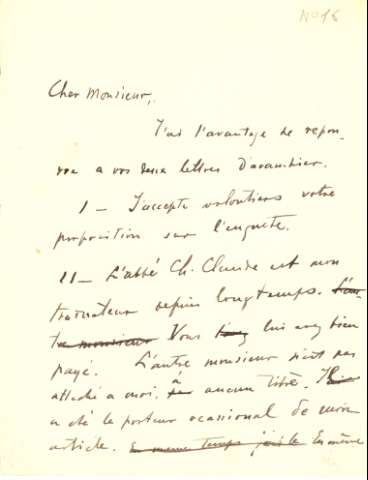 No 16
Cher Monsieur,
J'ai l'avantage de repon-
dre a vos deux lettres D'avant hier.
I — J'accepte volontiers votre
proposition sur l'enquete.
II — L'abbé Ch. Claude est mon
traducteur depuis longtemps. L'au-
tre monsieur Vous lui avez bien
payé. L'autre monsieur n'est pas
attaché a moi à aucun titre. Il
a été le porteur ocassional de mon
article. En meme temps je le En même